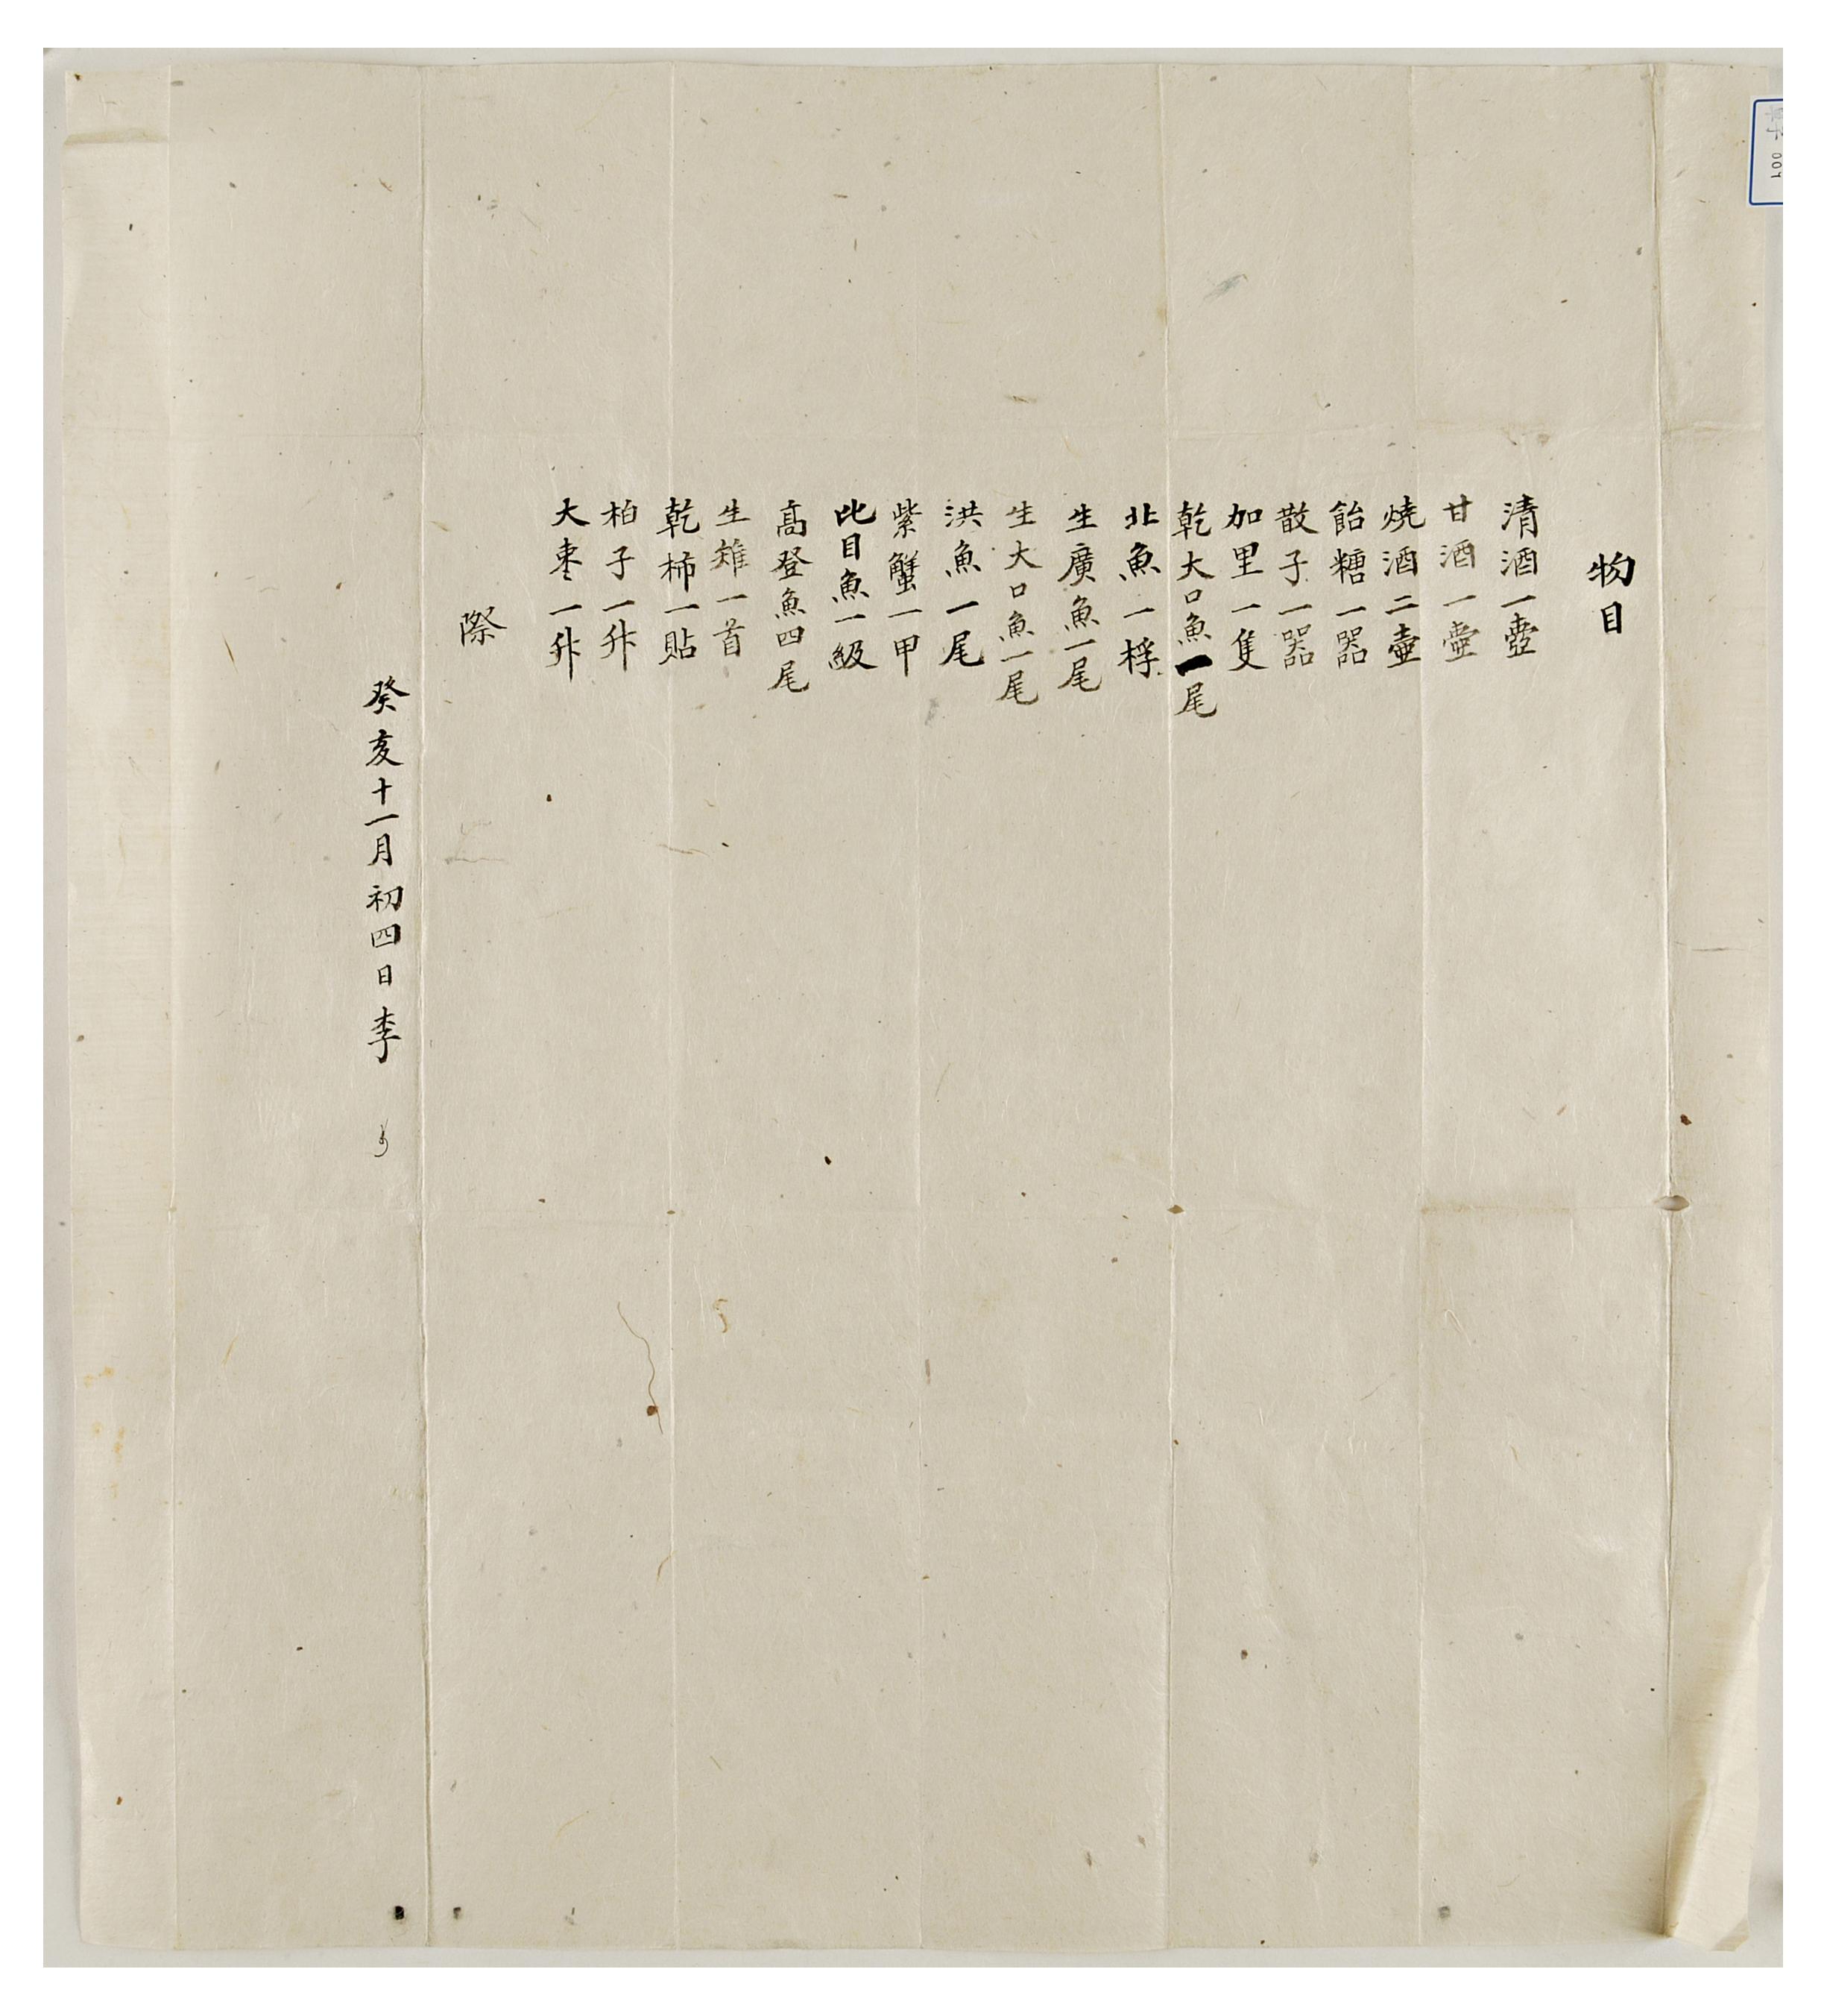 物目
清酒一壺
甘酒一壺
燒酒二壺
飴糖一器
散子一器
加里一隻
乾大口魚一尾
北魚一桴
生廣魚一尾
生大口魚一尾
洪魚一尾
紫蟹一甲
比目魚一級
高登魚四尾
生雉一首
乾柿一貼
柏子一升
大棗一升
際
癸亥十一月初四日李